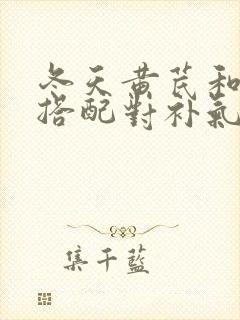 冬天黄芪和
搭配對补氣
集千藍